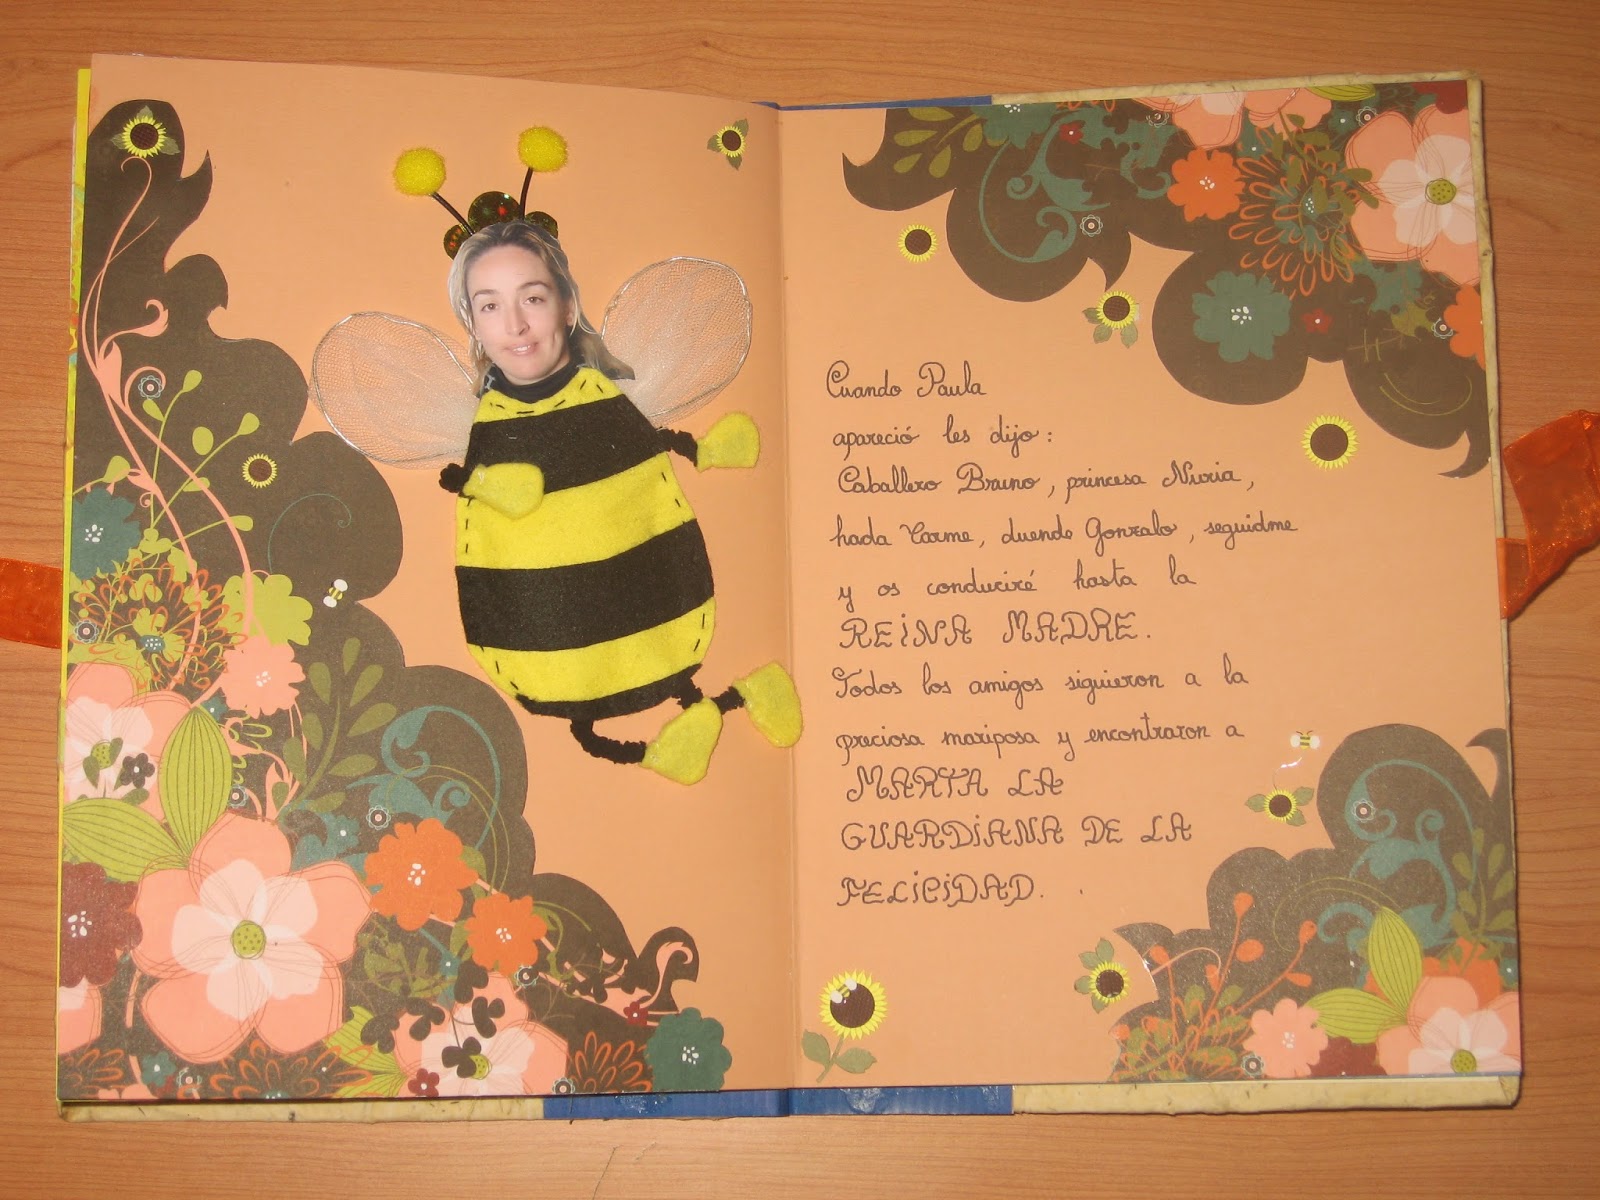 Cuando Paula
apareció les dijo:
Caballero Bruno, princesa Nuria,
hada Carme, duende Gonzalo, seguidme
y os conduciré hasta la
REINA MADRE.
Todos los amigos siguieron a la
preciosa mariposa y encontraron a
MARTA LA
GUARDIANA DE LA
FELICIDAD.